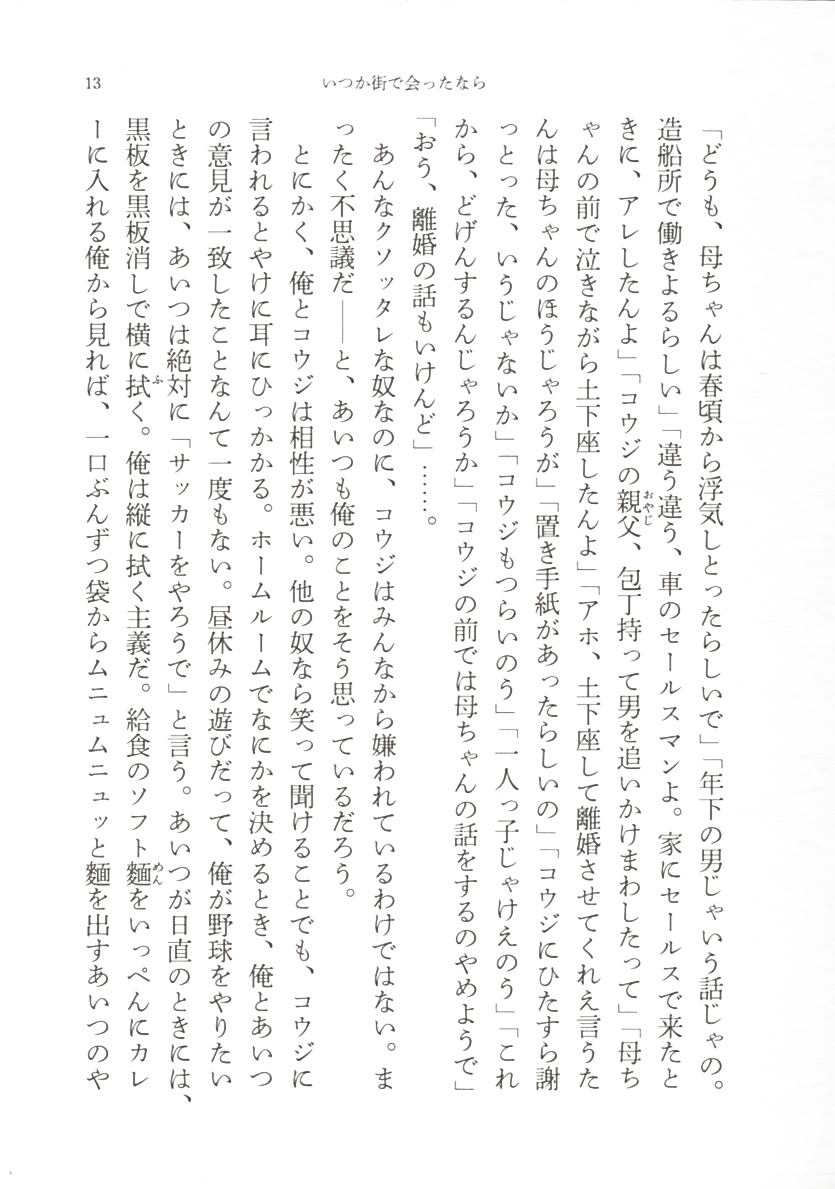 13
いつか街で会ったなら
「どうも、母ちゃんは春頃から浮気しとったらしいで」「年下の男じゃいう話じゃの。
造船所で働きよるらしい」「違う違う、車のセールスマンよ。家にセールスで来たと
きに、アレしたんよ」「コウジの親父、包丁持って男を追いかけまわしたって」「母ち
ゃんの前で泣きながら土下座したんよ」「アホ、土下座して離婚させてくれえ言うた
んは母ちゃんのほうじゃろうが」「置き手紙があったらしいの」「コウジにひたすら謝
っとった、いうじゃないか」「コウジもつらいのう」「一人っ子じゃけえのう」「これ
から、どげんするんじゃろうか」「コウジの前では母ちゃんの話をするのやめようで」
「おう、離婚の話もいけんど」……。
あんなクソッタレな奴なのに、コウジはみんなから嫌われているわけではない。ま
ったく不思議だ――と、あいつも俺のことをそう思っているだろう。
とにかく、俺とコウジは相性が悪い。他の奴なら笑って聞けることでも、コウジに
言われるとやけに耳にひっかかる。ホームルームでなにかを決めるとき、俺とあいつ
の意見が一致したことなんて一度もない。昼休みの遊びだって、俺が野球をやりたい
ときには、あいつは絶対に「サッカーをやろうで」と言う。あいつが日直のときには、
黒板を黒板消しで横に拭く。俺は縦に拭く主義だ。給食のソフト麵をいっぺんにカレ
ーに入れる俺から見れば、一口ぶんずつ袋からムニュムニュッと麵を出すあいつのや